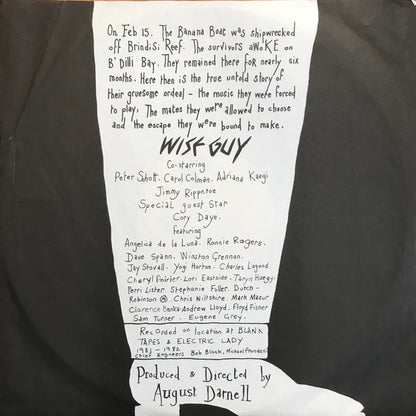 On Feb 15. The Banana Boat was shipwrecked
off Brindisi Reef. The survivors awoKE on
B'Dilli Bay. They remained there for nearly six
months. Here then is the true untold story of
their gruesome ordeal - the music they were forced
to play, The mates they were allowed to choose
and the escape they were bound to make.
WISE GUY
Co-starring
Peter Schott. Carol Colman. Adriana Kaegi
Jimmy Rippetoe
Special guest Star
Cory Daye.
Featuring
Angelica de la Luna. Ronnie Rogers.
Dave Span. Winston Grennan.
Jay Stovall. Yogi Horton. Charles Lagond
Cheryl Poirier Lori Eastside. Taryn Haegy
Perri Lister. Stephanie Fuller. Dutch-
Robinson. Chris Wiltshire. Mark Mazur
Clarence Banks. Andrew Lloyd. Floyd Fisher
Sam Turner. Eugene Grey.
Recorded on location at BLANK
TAPES & ELECTRIC LADY
1981 - 1982
Chief Engineers Bob Blank, Michael
Produced & Directed by
August Darnell